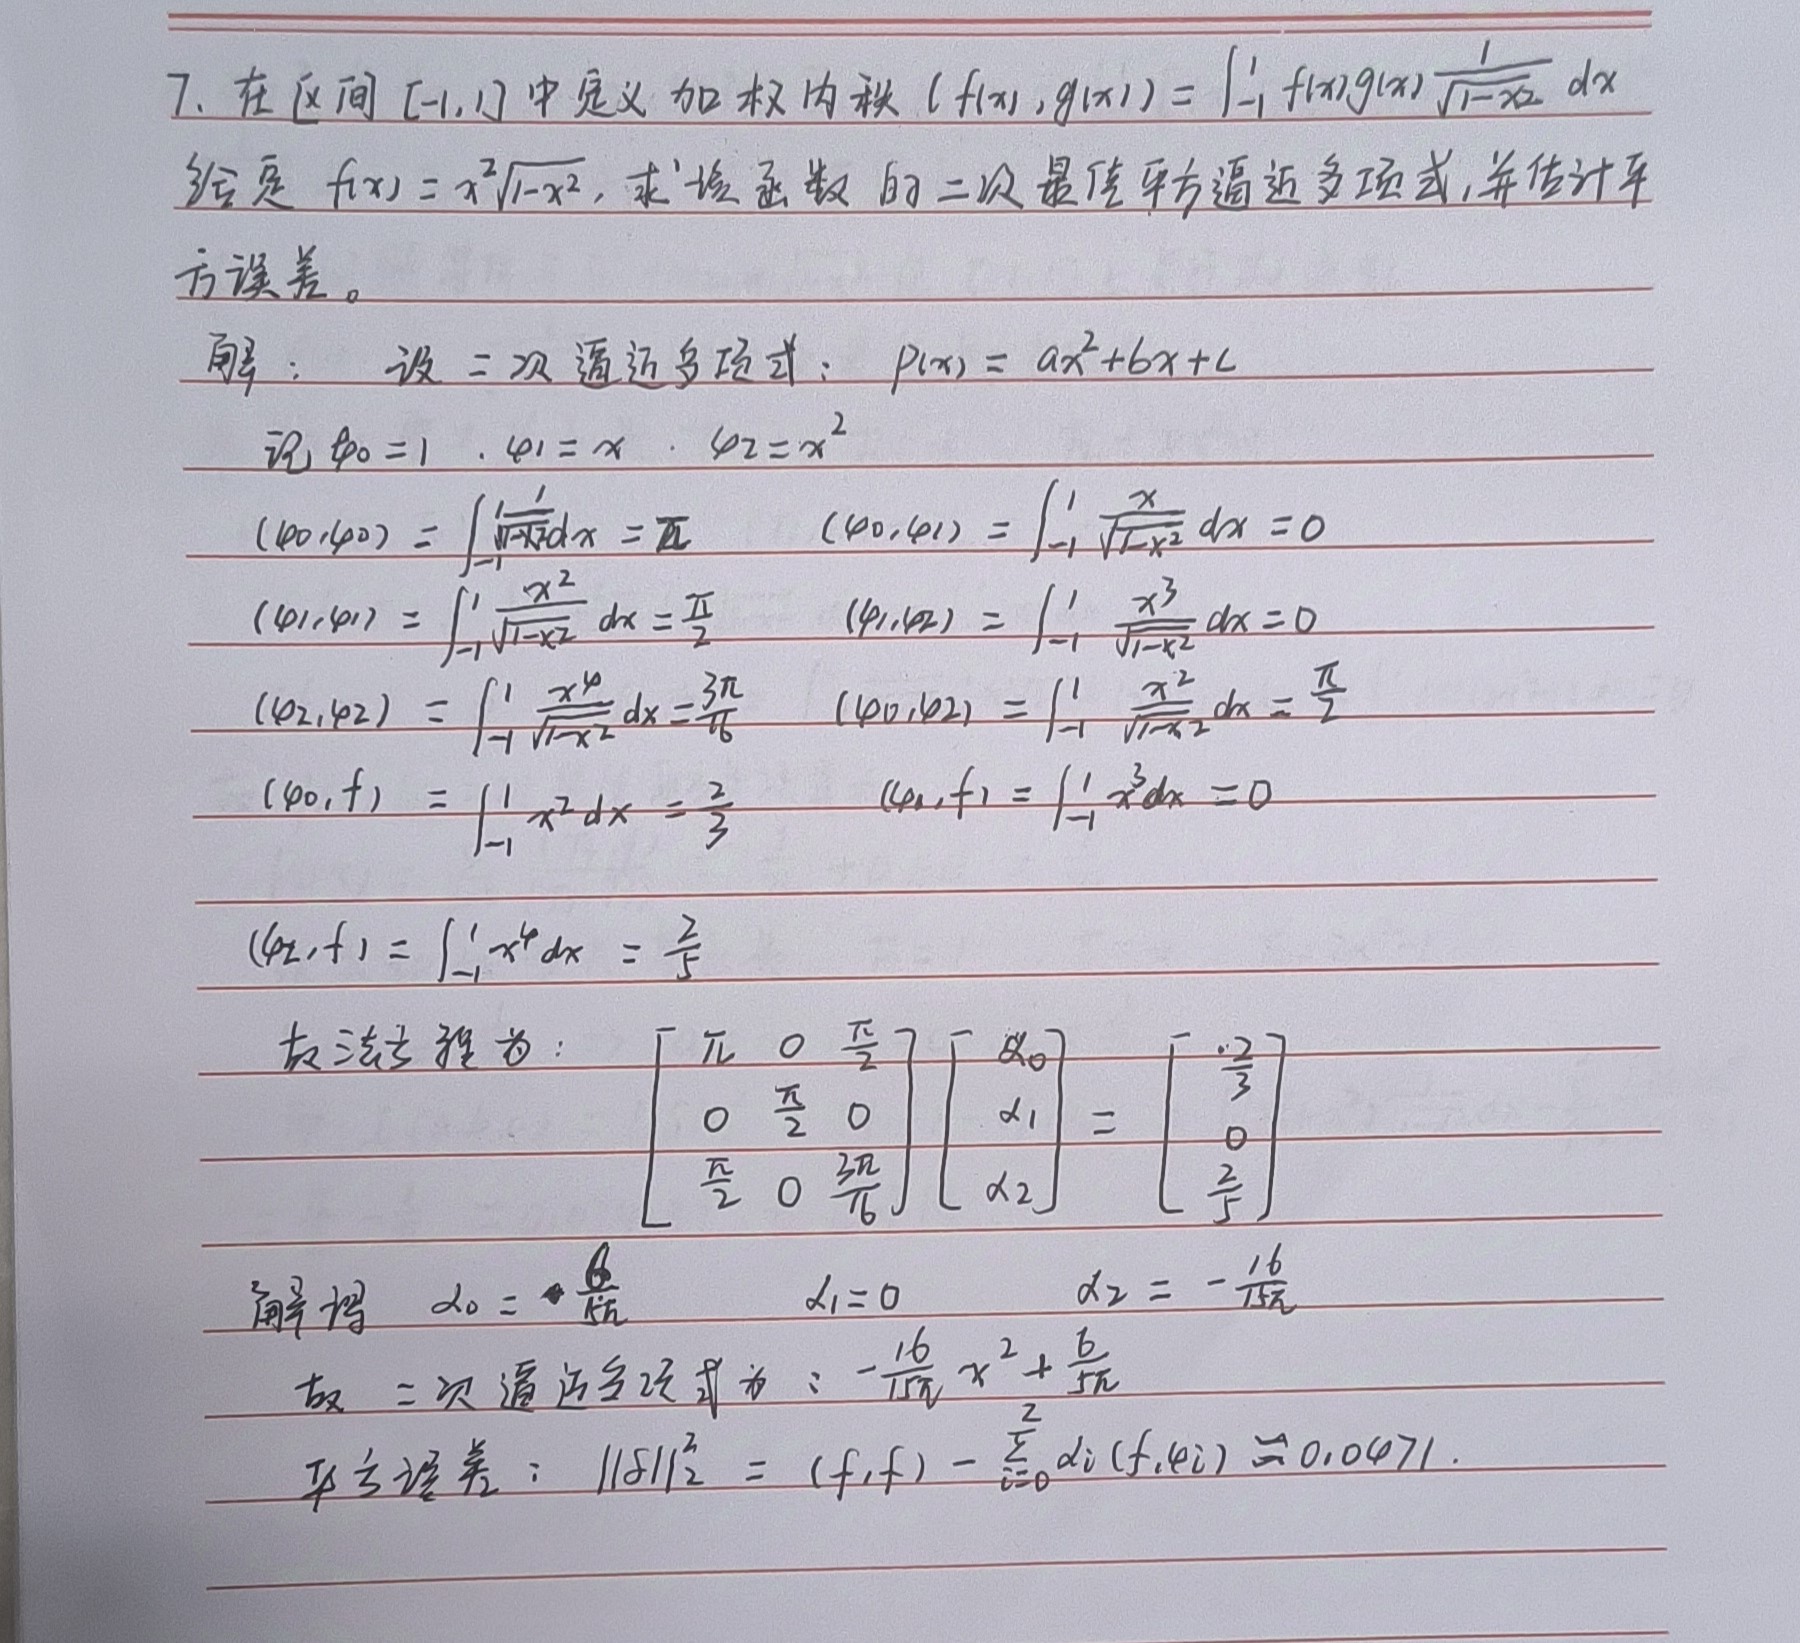 7. 在区间 [-1,1] 中定义加权内积 (f(x), g(x)) = ∫_{-1}^{1} f(x)g(x) \frac{1}{\sqrt{1-x^2}} dx
给定 f(x) = x^2\sqrt{1-x^2}, 求该函数的二次最佳平方逼近多项式, 并估计平
方误差。
解: 设二次逼近多项式: P(x) = ax^2+bx+c
记 φ0=1 . φ1=x . φ2=x^2
(φ0,φ0) = ∫_{-1}^{1} \frac{1}{\sqrt{1-x^2}} dx = π (φ0,φ1) = ∫_{-1}^{1} \frac{x}{\sqrt{1-x^2}} dx = 0
(φ1,φ1) = ∫_{-1}^{1} \frac{x^2}{\sqrt{1-x^2}} dx = \frac{π}{2} (φ1,φ2) = ∫_{-1}^{1} \frac{x^3}{\sqrt{1-x^2}} dx = 0
(φ2,φ2) = ∫_{-1}^{1} \frac{x^4}{\sqrt{1-x^2}} dx = \frac{3π}{16} (φ0,φ2) = ∫_{-1}^{1} \frac{x^2}{\sqrt{1-x^2}} dx = \frac{π}{2}
(φ0,f) = ∫_{-1}^{1} x^2 dx = \frac{2}{3} (φ1,f) = ∫_{-1}^{1} x^3 dx = 0
(φ2,f) = ∫_{-1}^{1} x^4 dx = \frac{2}{5}
故法方程为: \begin{bmatrix} π & 0 & \frac{π}{2} \\ 0 & \frac{π}{2} & 0 \\ \frac{π}{2} & 0 & \frac{3π}{16} \end{bmatrix} \begin{bmatrix} α_0 \\ α_1 \\ α_2 \end{bmatrix} = \begin{bmatrix} \frac{2}{3} \\ 0 \\ \frac{2}{5} \end{bmatrix}
解得 α0 = \frac{6}{5π} α1=0 α2 = -\frac{16}{15π}
故二次逼近多项式为: -\frac{16}{15π} x^2 + \frac{6}{5π}
平方误差: ||δ||_2^2 = (f,f) - \sum_{i=0}^{2} αi(f,φi) ≈ 0.0471.